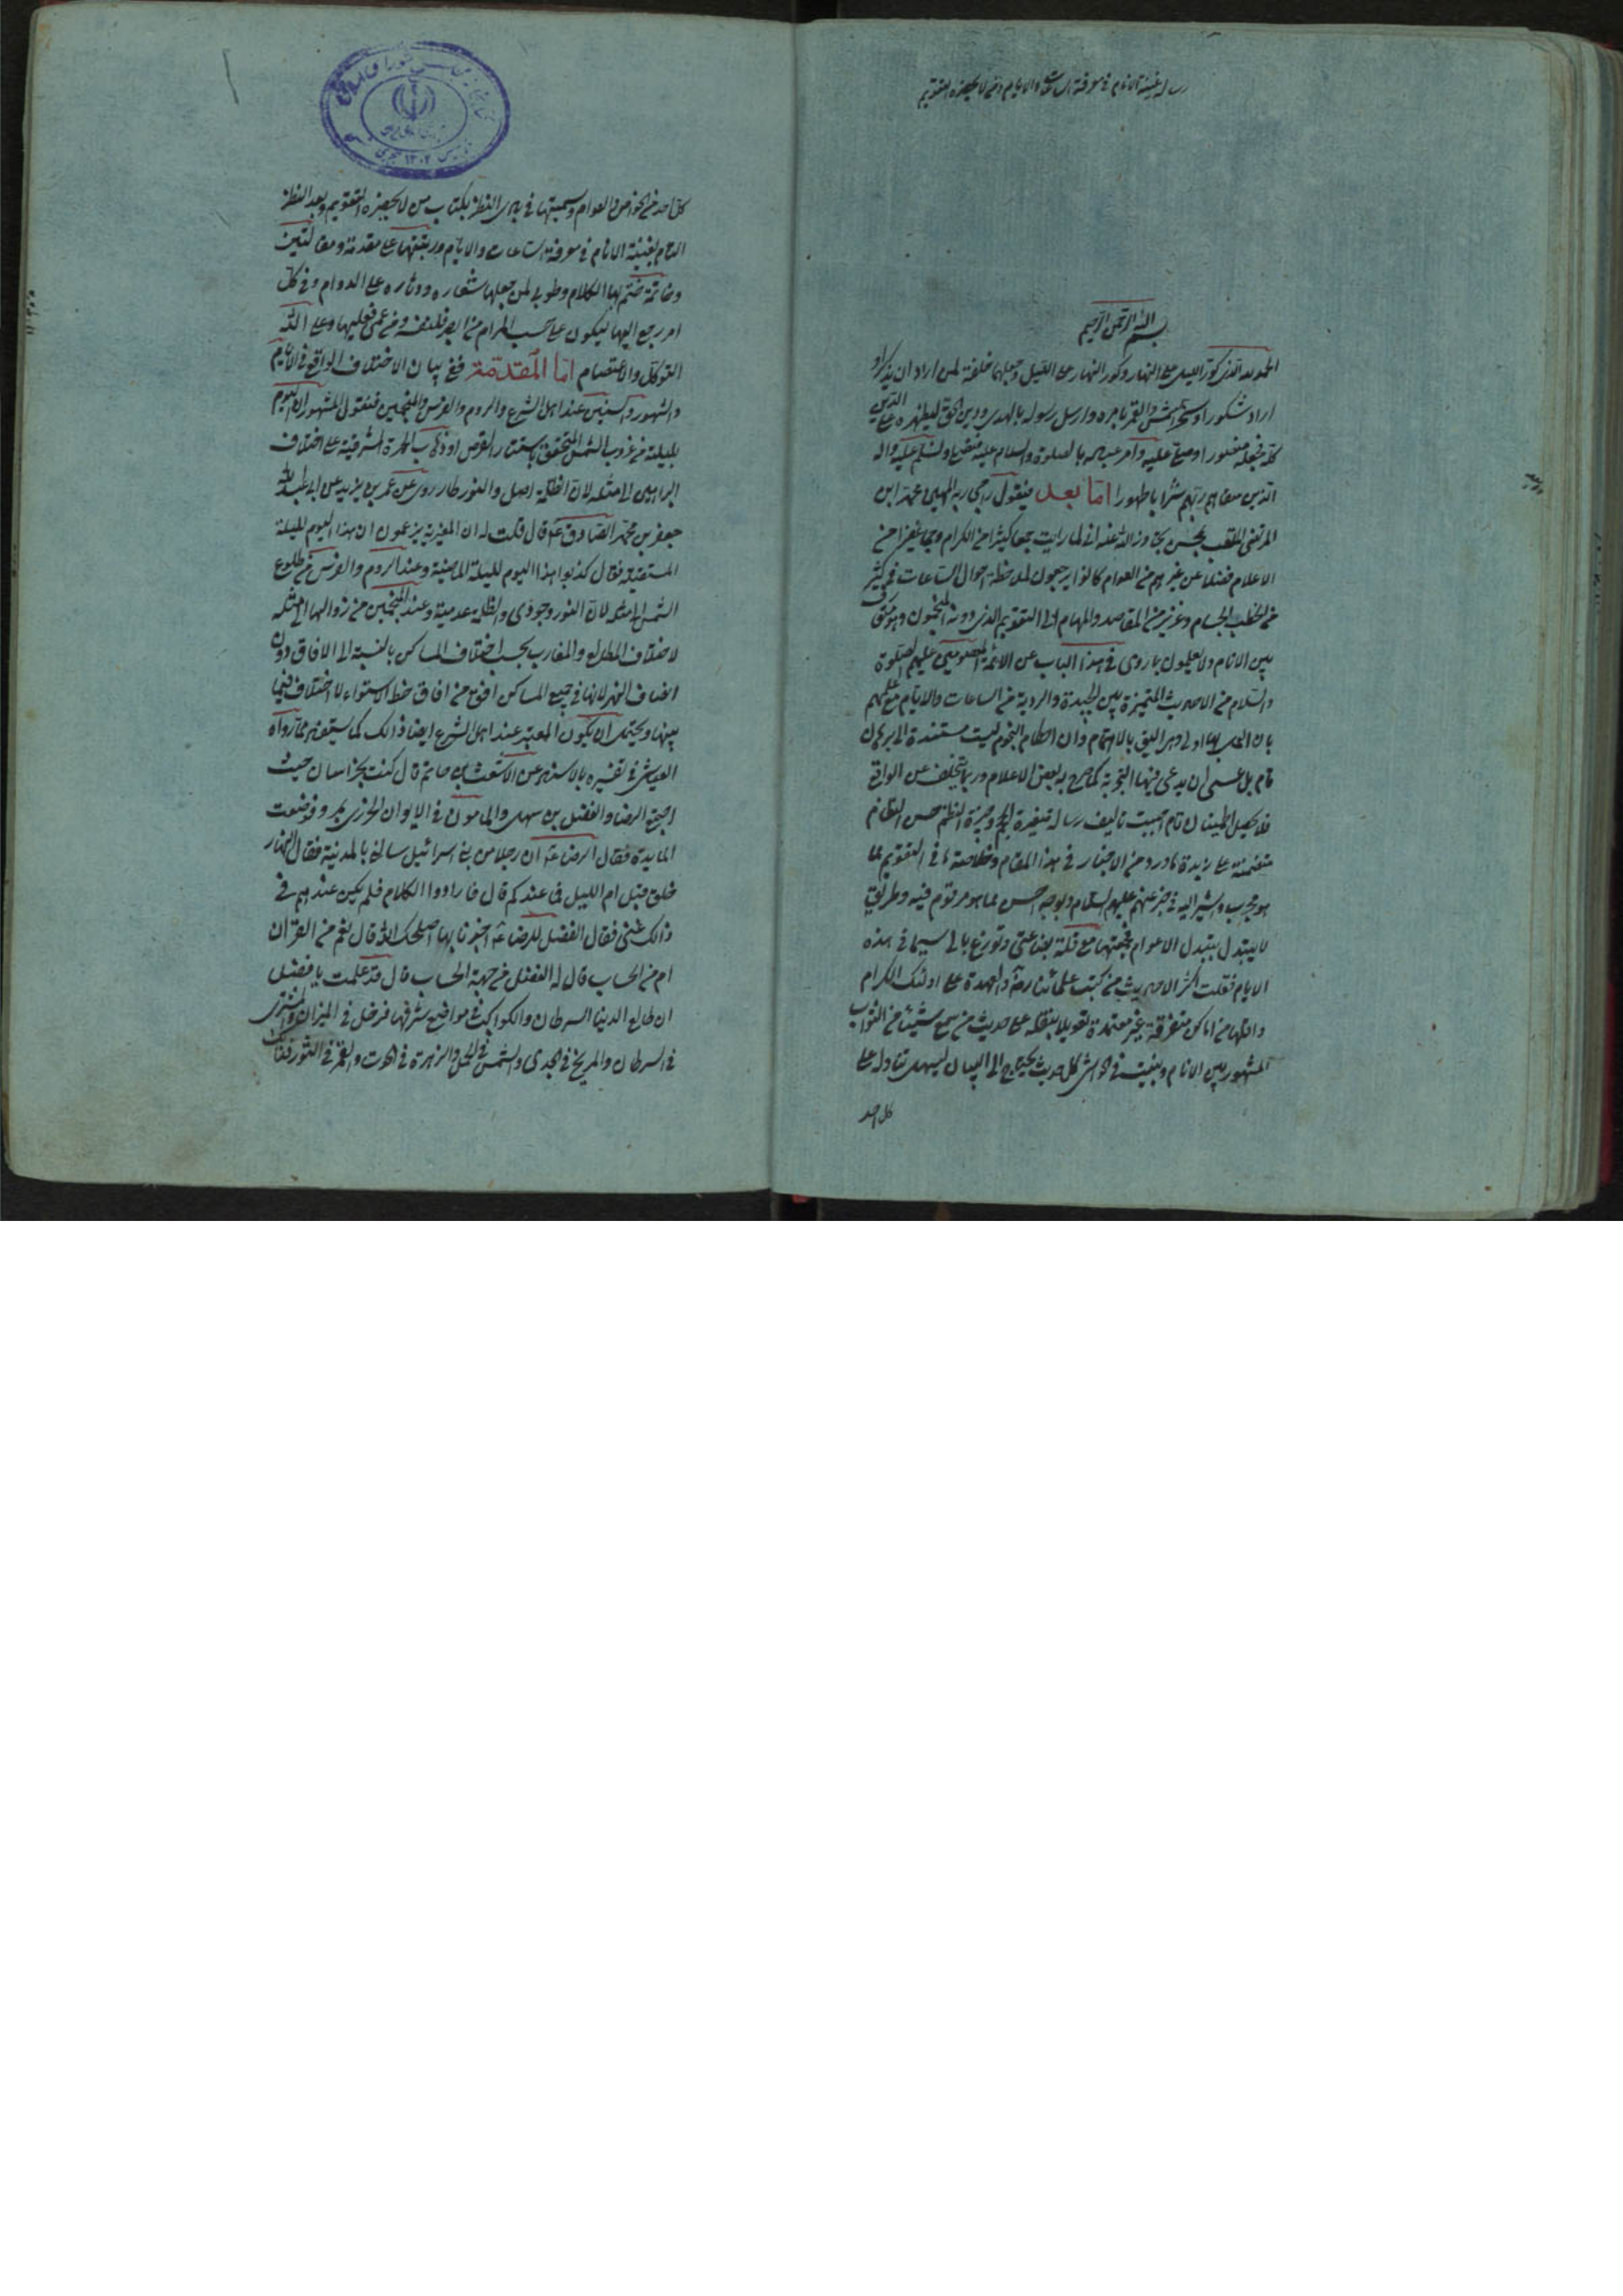 رساله غنية الانام في معرفة الساعات والايام ومن لا يحضره التقويم
بسم الله الرحمن الرحيم
الحمد لله الذي كور الليل على النهار وكور النهار على الليل وجعلهما خلفة لمن اراد ان يذكر او
اراد شكورا وسخر الشمس والقمر بامره وارسل رسوله بالهدى ودين الحق ليظهره على الدين
كله فجعله منصورا وصلى عليه وامر عباده بالصلوة والسلام عليه فنصلي ونسلم عليه واله
الذين سقاهم ربهم شرابا طهورا اما بعد فيقول راجي ربه المهيمن محمد ابن
المرتضى الملقب بمحسن تجاوز الله عنه اني لما رايت جما كثيرا من الكرام وجما غفيرا من
الاعلام فضلا عن غيرهم من العوام كانوا يرجعون لملاحظة احوال الساعات في كثير
من الخطب الجسام وغزير من المقاصد والمهام الى التقويم الذي دونه المنجمون وهو متعارف
بين الانام ولا يعلمون بما روى في هذا الباب عن الائمة المعصومين عليهم الصلوة
والسلام من الاحاديث المتميزة بين الجيدة والردية من الساعات والايام مع علمهم
بان العمل بها اولى وهي اليق بالاهتمام وان احكام النجوم ليست مستندة الى برهان
تام بل عسى ان يدعى فيها التجربة كما صرح به بعض الاعلام وربما يتخلف عن الواقع
فلا يحصل اطمينان تام احببت تاليف رسالة صغيرة الحجم وجيزة النظم حسن النظام
متضمنة على زبدة ما ورد من الاخبار في هذا المقام وخلاصة ما في التقويم مما
هو مجرب واشير اليه في خبر عنهم عليهم السلام وبوجه احسن مما هو مرقوم فيه وطريق
لا يتبدل بتبدل الاعوام فجمعتها مع قلة بضاعتي وتوزع بالي سيما في هذه
الايام فنقلت اكثر الاحاديث من كتب علمائنا ره والعهدة على اولئك الكرام
واقلها من اماكن متفرقة غير معتمدة تعويلا بنقله على حديث من سمع شيئا من الثواب
المشهور بين الانام وبينت في حواشي كل حديث يحتاج الى البيان ليسهل تناوله على
كل احد
كل احد من الخواص والعوام وسميتها في بادي النظر بكتاب من لا يحضره التقويم وبعد النظر
التام بغنية الانام في معرفة الساعات والايام ورتبتها على مقدمة ومقالتين
وخاتمة نختم بها الكلام وطوبى لمن جعلها شعاره ودثاره على الدوام وفي كل
امر يرجع اليها ليكون على حسب المرام من ابصر فلنفسه ومن عمي فعليها وعلى الله
التوكل والاعتصام اما المقدمة ففي بيان الاختلاف الواقع في الايام
والشهور والسنين عند اهل الشرع والروم والفرس والمنجمين فنقول المشهور ان اليوم
بليلته من غروب الشمس المتحقق باستتار القرص او ذهاب الحمرة المشرقية على اختلاف
الرايين الى مثله لان الظلمة اصل والنور طار روى عن عمر بن يزيد عن ابي عبد الله
جعفر بن محمد الصادق ع قال قلت له ان المغيرية يزعمون ان هذا اليوم لليلة
المستقبلة فقال كذبوا هذا اليوم لليلة الماضية وعند الروم والفرس من طلوع
الشمس الى مثله لان النور وجودي والظلمة عدمية وعند المنجمين من زوالها الى مثله
لاختلاف المطالع والمغارب بحسب اختلاف المساكن بالنسبة الى الافاق دون
انصاف النهر لانها في جميع المساكن افق من افاق خط الاستواء لا اختلاف فيما
بينها ويحتمل ان يكون المعتبر عند اهل الشرع ايضا ذالك كما يستفيد مما رواه
العياشي في تفسيره بالاسناد عن الاشعث بن حاتم قال كنت بخراسان حيث
اجتمع الرضا والفضل بن سهل والمامون في الايوان الحبري بمرو فوضعت
المايدة فقال الرضا ع ان رجلا من بني اسرائيل سالني بالمدينة فقال النهار
خلق قبل ام الليل فما عندكم قال فاراد وا الكلام فلم يكن عندهم في
ذالك شئ فقال الفضل للرضا ع اخبرنا بها اصلحك الله قال نعم من القران
ام من الحساب قال له الفضل من جهة الحساب قال قد علمت يا فضل
ان طالع الدنيا السرطان والكواكب في مواضع شرفها فزحل في الميزان والمشتري
في السرطان والمريخ في الجدي والشمس في الحمل والزهرة في الحوت والقمر في الثور فذالك